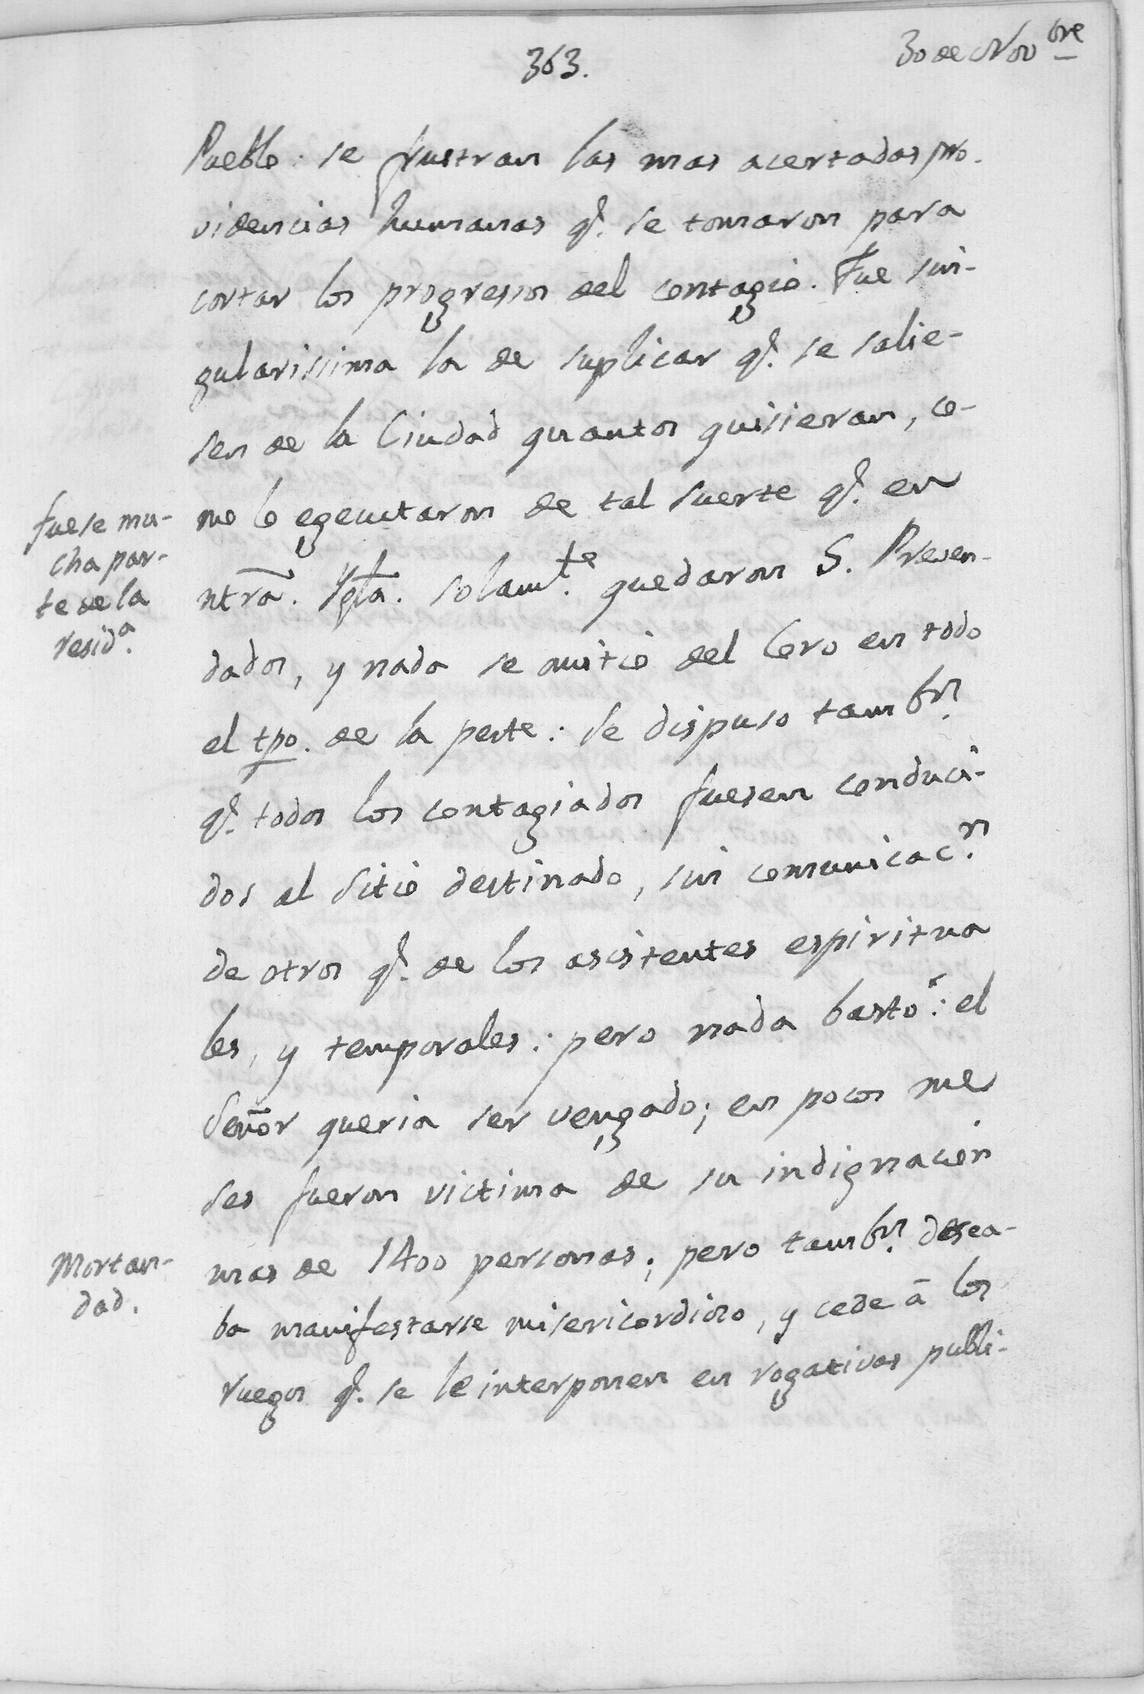 363.
30 de Nov^bre
Pueblo: se frustran las mas acertadas pro-
videncias humanas q.^e se tomaron para
cortar los progressos del contagio. Fue sin-
gularissima la de suplicar q.^e se salie-
sen de la Ciudad quantos quisieran, co-
mo lo egecutaron de tal suerte q.^e en
fuese mu-
cha par-
te de la
resid.^a
ntrã. Ygla. solam.^te quedaron 5. Preven-
dados, y nada se omitió del Coro en todo
el tpo. de la peste: se dispuso tamb.^n
q.^e todos los contagiados fuesen conduci-
dos al sitio destinado, sin comunicac.^n
de otros q.^e de los asistentes espiritua
les, y temporales: pero nada bastó: el
Señor queria ser vengado; en pocos me
ses fueron victima de su indignación
Mortan-
dad.
mas de 1400 personas; pero tamb.^n desea-
ba manifestarse misericordioso, y cede á los
ruegos q.^e se le interponen en rogativas publi-